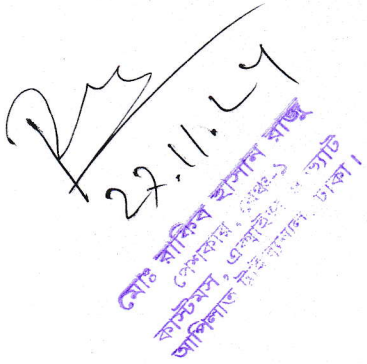 27.11.24
মোঃ রাকিব হাসান রাজু
পেশকার, বেঞ্চ-১
কাস্টমস, এক্সাইজ ও ভ্যাট
আপিলাত ট্রাইব্যুনাল, ঢাকা।